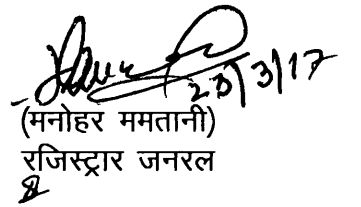 23/3/17
(मनोहर ममतानी)
रजिस्ट्रार जनरल